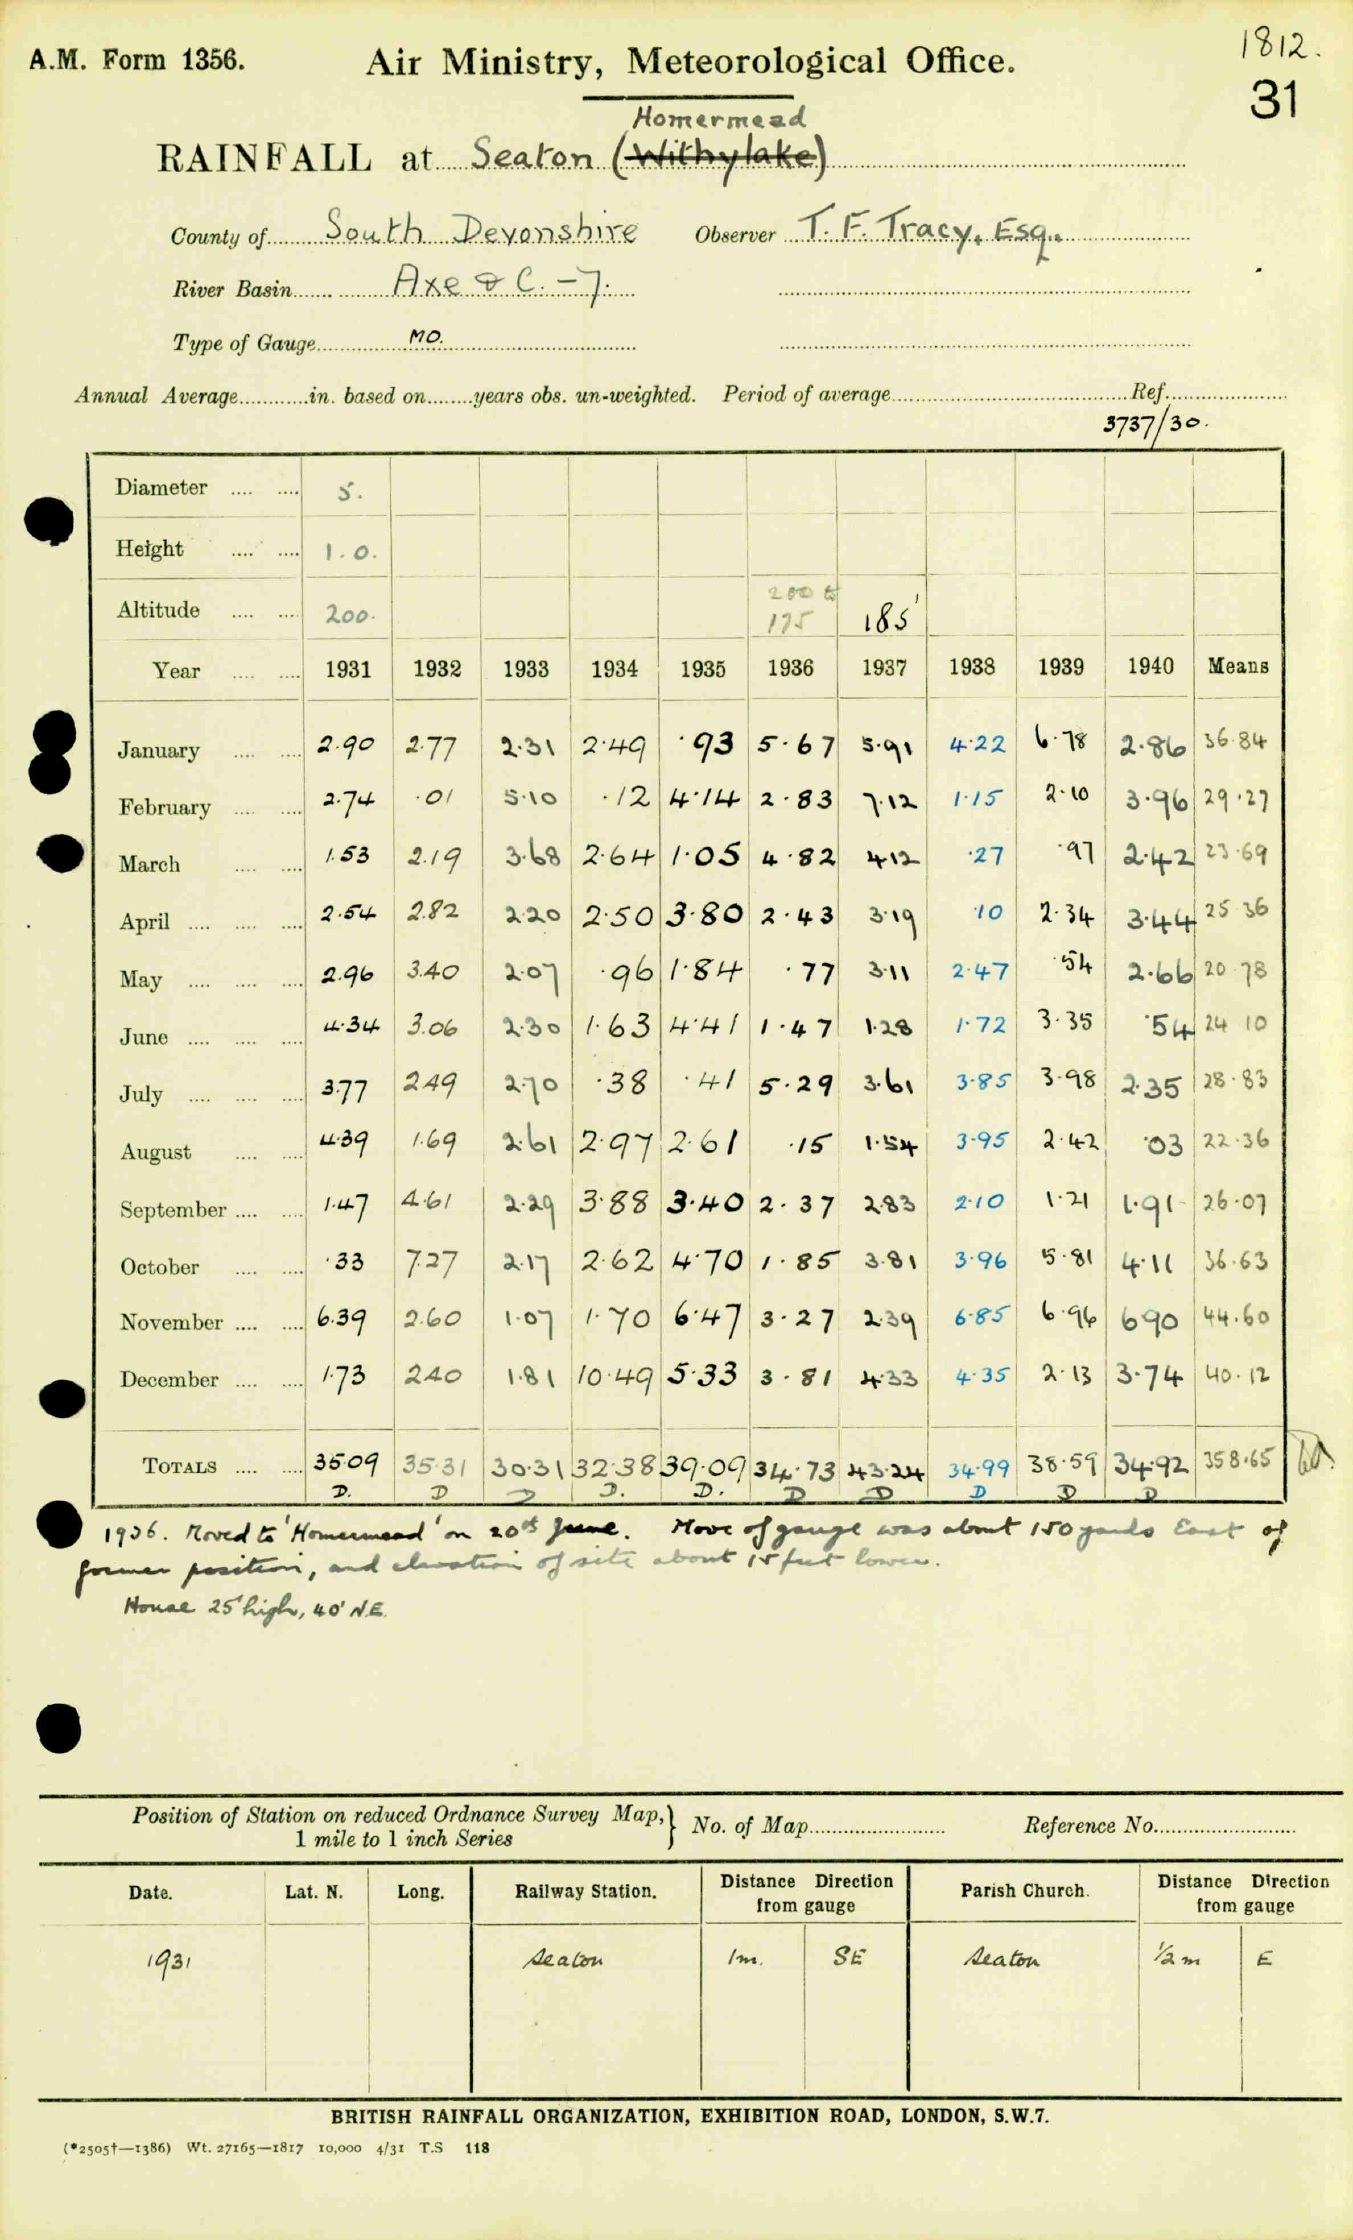 A.M. Form 1356. Air Ministry, Meteorological Office. 1812.
31
Homermead
RAINFALL at Seaton (Withylake)
County of South Devonshire Observer T. F. Tracy, Esq.
River Basin Axe & C. - 7.
Type of Gauge MO.
Annual Average in. based on years obs. un-weighted. Period of average Ref.
3737/30.
Diameter 5.
Height 1.0.
200 to
Altitude 200. 175 185'
Year 1931 1932 1933 1934 1935 1936 1937 1938 1939 1940 Means
January 2.90 2.77 2.31 2.49 .93 5.67 5.91 4.22 6.78 2.86 36.84
February 2.74 .01 5.10 .12 4.14 2.83 7.12 1.15 2.10 3.96 29.27
March 1.53 2.19 3.68 2.64 1.05 4.82 4.12 .27 .97 2.42 23.69
April 2.54 2.82 2.20 2.50 3.80 2.43 3.19 .10 2.34 3.44 25.36
May 2.96 3.40 2.07 .96 1.84 .77 3.11 2.47 .54 2.66 20.78
June 4.34 3.06 2.30 1.63 4.41 1.47 1.28 1.72 3.35 .54 24.10
July 3.77 2.49 2.70 .38 .41 5.29 3.61 3.85 3.98 2.35 28.83
August 4.39 1.69 2.61 2.97 2.61 .15 1.54 3.95 2.42 .03 22.36
September 1.47 4.61 2.29 3.88 3.40 2.37 2.83 2.10 1.21 1.91 26.07
October .33 7.27 2.17 2.62 4.70 1.85 3.81 3.96 5.81 4.11 36.63
November 6.39 2.60 1.07 1.70 6.47 3.27 2.39 6.85 6.96 6.90 44.60
December 1.73 2.40 1.81 10.49 5.33 3.81 4.33 4.35 2.13 3.74 40.12
TOTALS 35.09 35.31 30.31 32.38 39.09 34.73 43.24 34.99 38.59 34.92 358.65
D. D D D. D. D D D D D
1936. Moved to 'Homermead' on 20th June. Move of gauge was about 150 yards East of
former position, and elevation of site about 15 feet lower.
House 25' high, 40' N.E.
Position of Station on reduced Ordnance Survey Map, } No. of Map Reference No.
1 mile to 1 inch Series
Date. Lat. N. Long. Railway Station. Distance Direction from gauge Parish Church. Distance Direction from gauge
1931 Seaton 1m. SE Seaton ½ m E
BRITISH RAINFALL ORGANIZATION, EXHIBITION ROAD, LONDON, S.W.7.
(*2505†—1386) Wt. 27165—1817 10,000 4/31 T.S 118